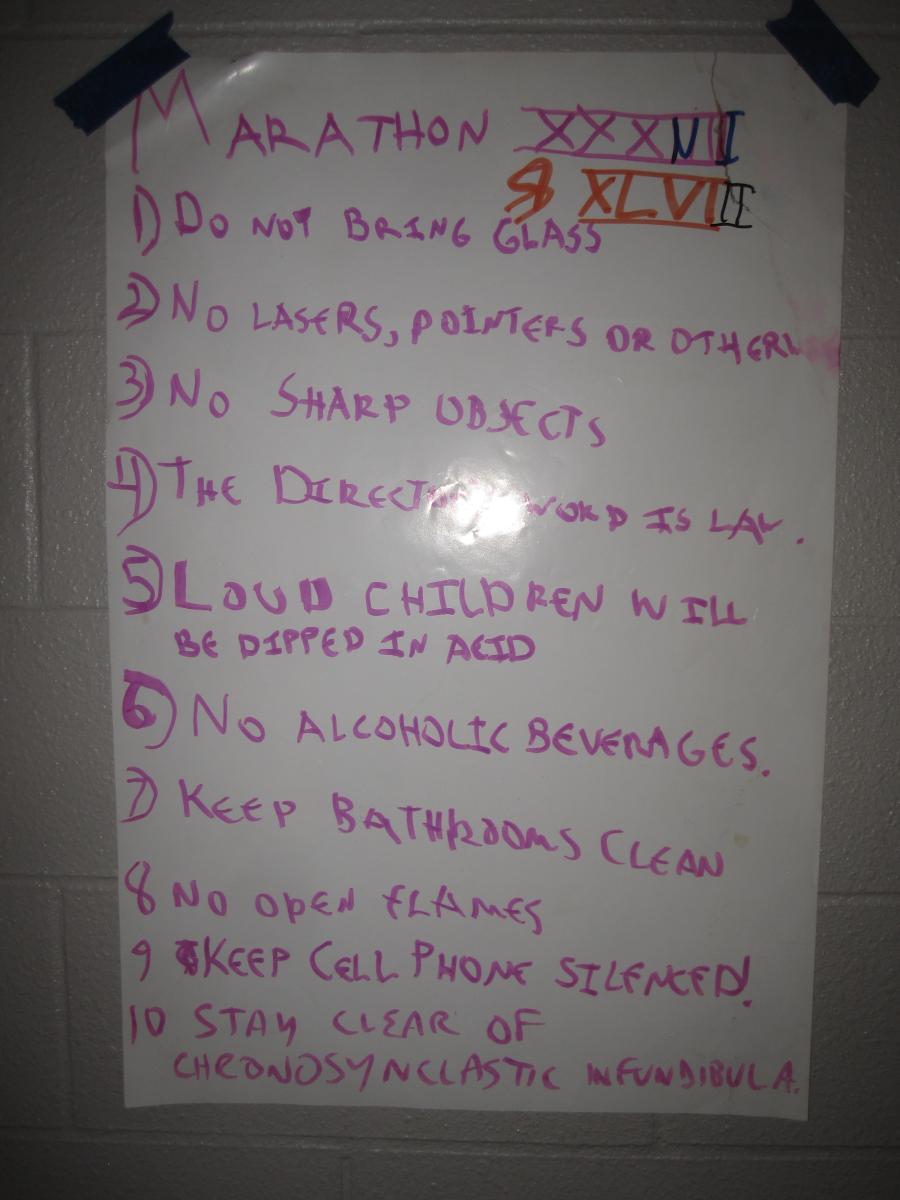 MARATHON XXXVIII
& XLVIII
1) DO NOT BRING GLASS
2) NO LASERS, POINTERS OR OTHERW
3) NO SHARP OBJECTS
4) THE DIRECTOR'S WORD IS LAW.
5) LOUD CHILDREN WILL
BE DIPPED IN ACID
6) NO ALCOHOLIC BEVERAGES.
7) KEEP BATHROOMS CLEAN
8 NO OPEN FLAMES
9 KEEP CELL PHONE SILENCED!
10 STAY CLEAR OF
CHRONOSYNCLASTIC INFUNDIBULA.